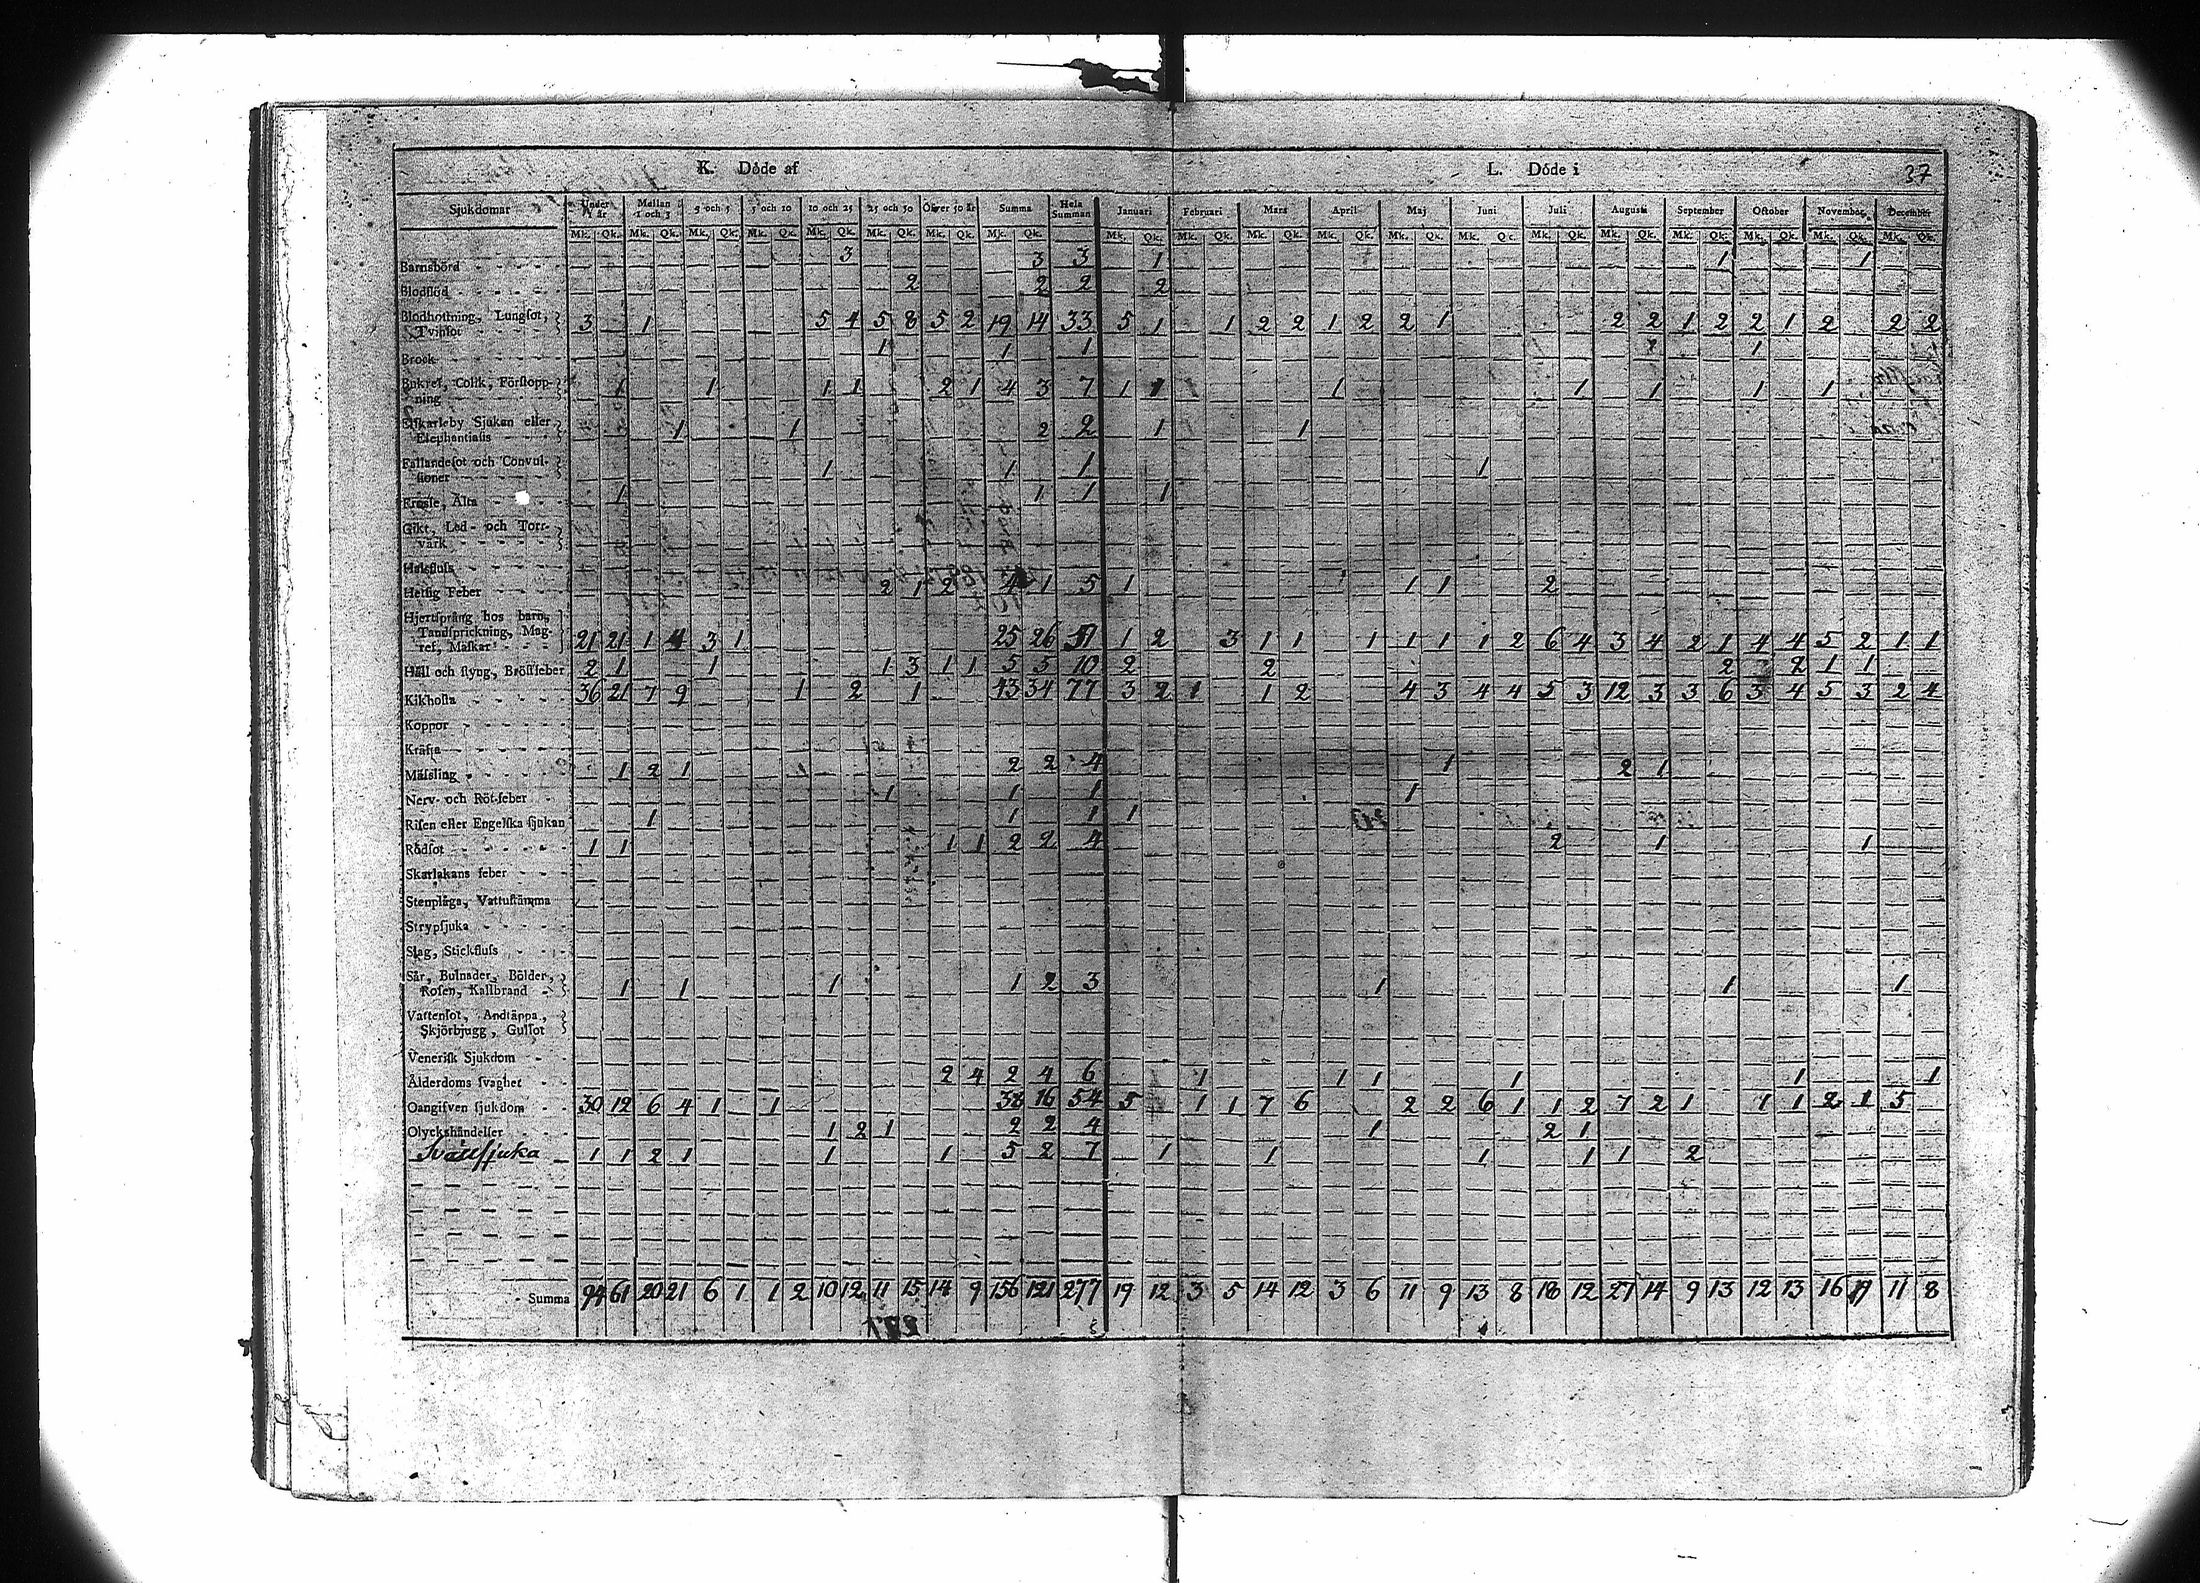 K. Döde af L. Döde i 37
Sjukdomar Under 1 år Mellan 1 och 3 3 och 5 5 och 10 10 och 25 25 och 50 Öfver 50 år Summa Hela Summan Januari Februari Mars April Maj Juni Juli Augusti September October November December
Mk. Qk. Mk. Qk. Mk. Qk. Mk. Qk. Mk. Qk. Mk. Qk. Mk. Qk. Mk. Qk. Mk. Qk. Mk. Qk. Mk. Qk. Mk. Qk. Mk. Qk. Mk. Qk. Mk. Qk. Mk. Qk. Mk. Qk. Mk. Qk. Mk. Qk. Mk. Qk.
Barnsbörd 3 3 3 1 1 1
Blodflöd 2 2 2 2
Blodhostning, Lungsot,
Tvinsot 3 1 5 4 5 8 5 2 19 14 33 5 1 1 2 2 1 2 2 1 2 2 1 2 2 1 2 2 2
Brock 1 1 1 1
Bukref, Colik, Förstopp-
ning 1 1 1 1 2 1 4 3 7 1 1 1 1 1 1
Elfkarleby Sjukan eller
Elephantiasis 1 1 2 2 1 1
Fallandesot och Convul-
sioner 1 1 1 1
Frossa, Älta 1 1 1 1
Gikt, Led- och Torr-
värk
Halsfluss
Hetsig Feber 2 1 2 4 1 5 1 1 1 2
Hjertsprång hos barn,
Tandsprickning, Mag-
ref, Maskar 21 21 1 4 3 1 25 26 51 1 2 3 1 1 1 1 1 1 2 6 4 3 4 2 1 4 4 5 2 1 1
Håll och styng, Bröstfeber 2 1 1 1 3 1 1 5 5 10 2 2 2 2 1 1
Kikhosta 36 21 7 9 1 2 1 43 34 77 3 2 1 1 2 4 3 4 4 5 3 12 3 3 6 3 4 5 3 2 4
Koppor
Kräfta
Mässling 1 2 1 2 2 4 1 2 1
Nerv- och Röt-feber 1 1 1 1
Risen eller Engelska sjukan 1 1 1 1
Rödsot 1 1 1 1 2 2 4 2 1 1
Skarlakans feber
Stenplåga, Vattustämma
Strypsjuka
Slag, Stickfluss
Sår, Bulnader, Bölder,
Rosen, Kallbrand 1 1 1 1 2 3 1 1 1
Vattensot, Andtäppa,
Skjörbjugg, Gulsot
Venerisk Sjukdom
Ålderdoms svaghet 2 4 2 4 6 1 1 1 1 1 1
Oangifven sjukdom 30 12 6 4 1 1 38 16 54 5 1 1 7 6 2 2 6 1 1 2 7 2 1 1 1 2 1 5
Olyckshändelser 1 2 1 2 2 4 1 2 1
1 1 2 1 1 1 5 2 7 1 1 1 1 1 2
Summa 94 61 20 21 6 1 1 2 10 12 11 15 14 9 156 121 277 19 12 3 5 14 12 3 6 11 9 13 8 18 12 27 14 9 13 12 13 16 11 8